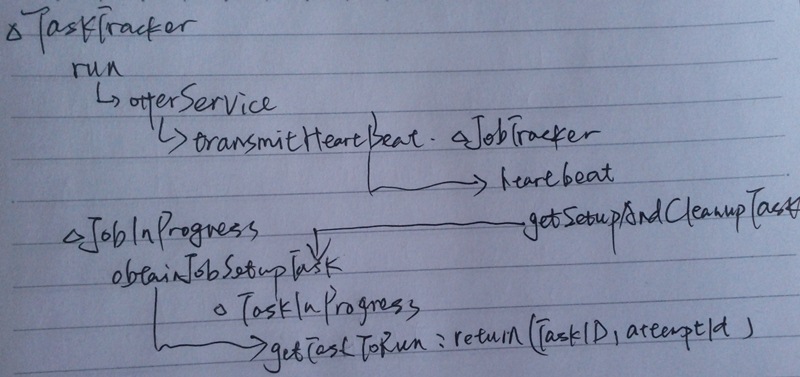 △TaskTracker
run
↳ offerService
↳ transmitHeartBeat. △JobTracker
→ heartbeat
getSetupAndCleanupTask
△JobInProgress
obtainJobSetupTask
△ TaskInProgress
→ getTaskToRun : return (TaskID, attemptId)